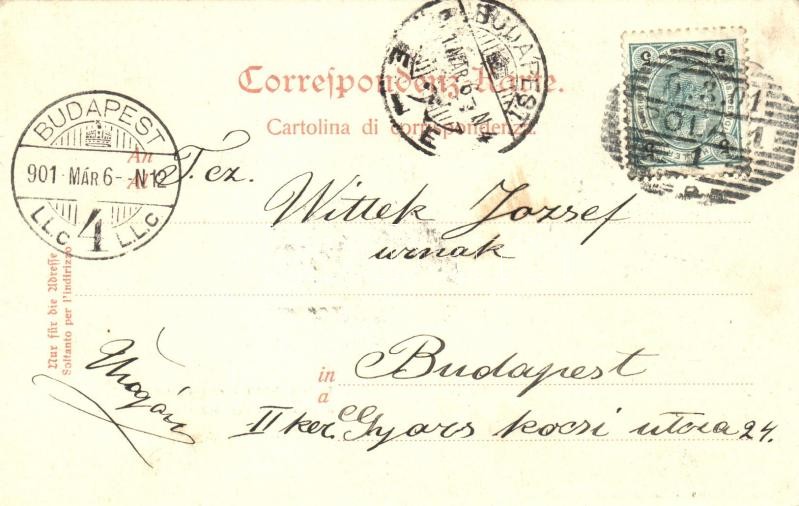 Correspondenz-Karte.
Cartolina di corrispondenza.
BUDAPEST
901 MÁR 6 - N 12
LLC 4 LLC
BUDAPEST
1 MAR 6
5 5
POLA 1
An
A
T. cz.
Wittek Jozsef
urnak
Nur für die Adresse
Soltanto per l'indirizzo
in
a
Budapest
II ker. Gyors kocsi utcza 24.